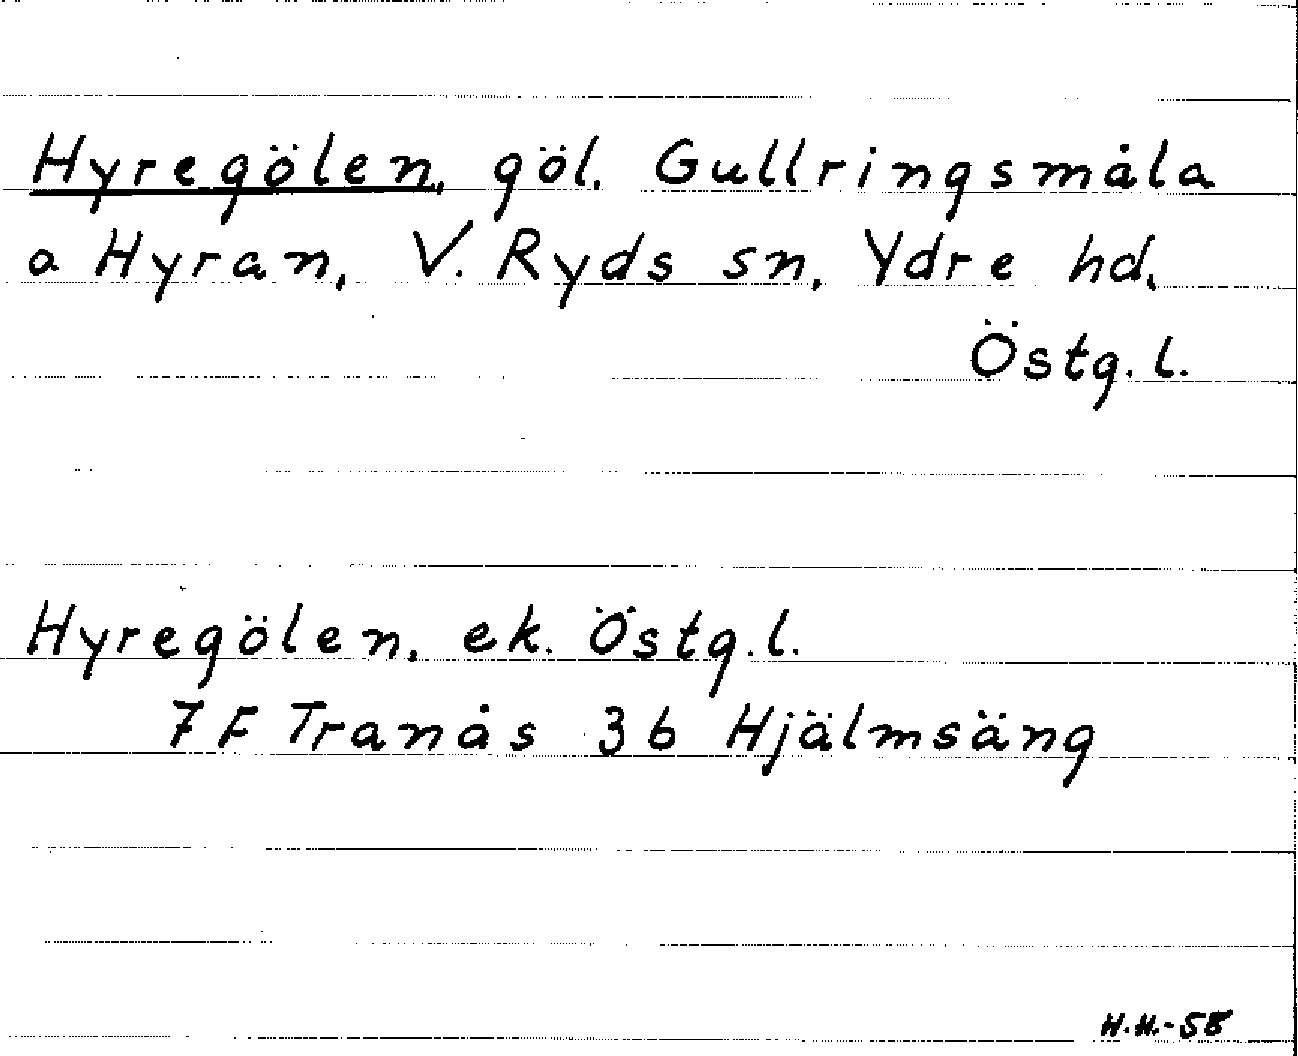 Hyregölen, göl. Gullringsmåla
o Hyran, V. Ryds sn, Ydre hd,
Östg. l.
Hyregölen, ek. Östg. l.
7 F Tranås 3 b Hjälmsäng
H.H.-58